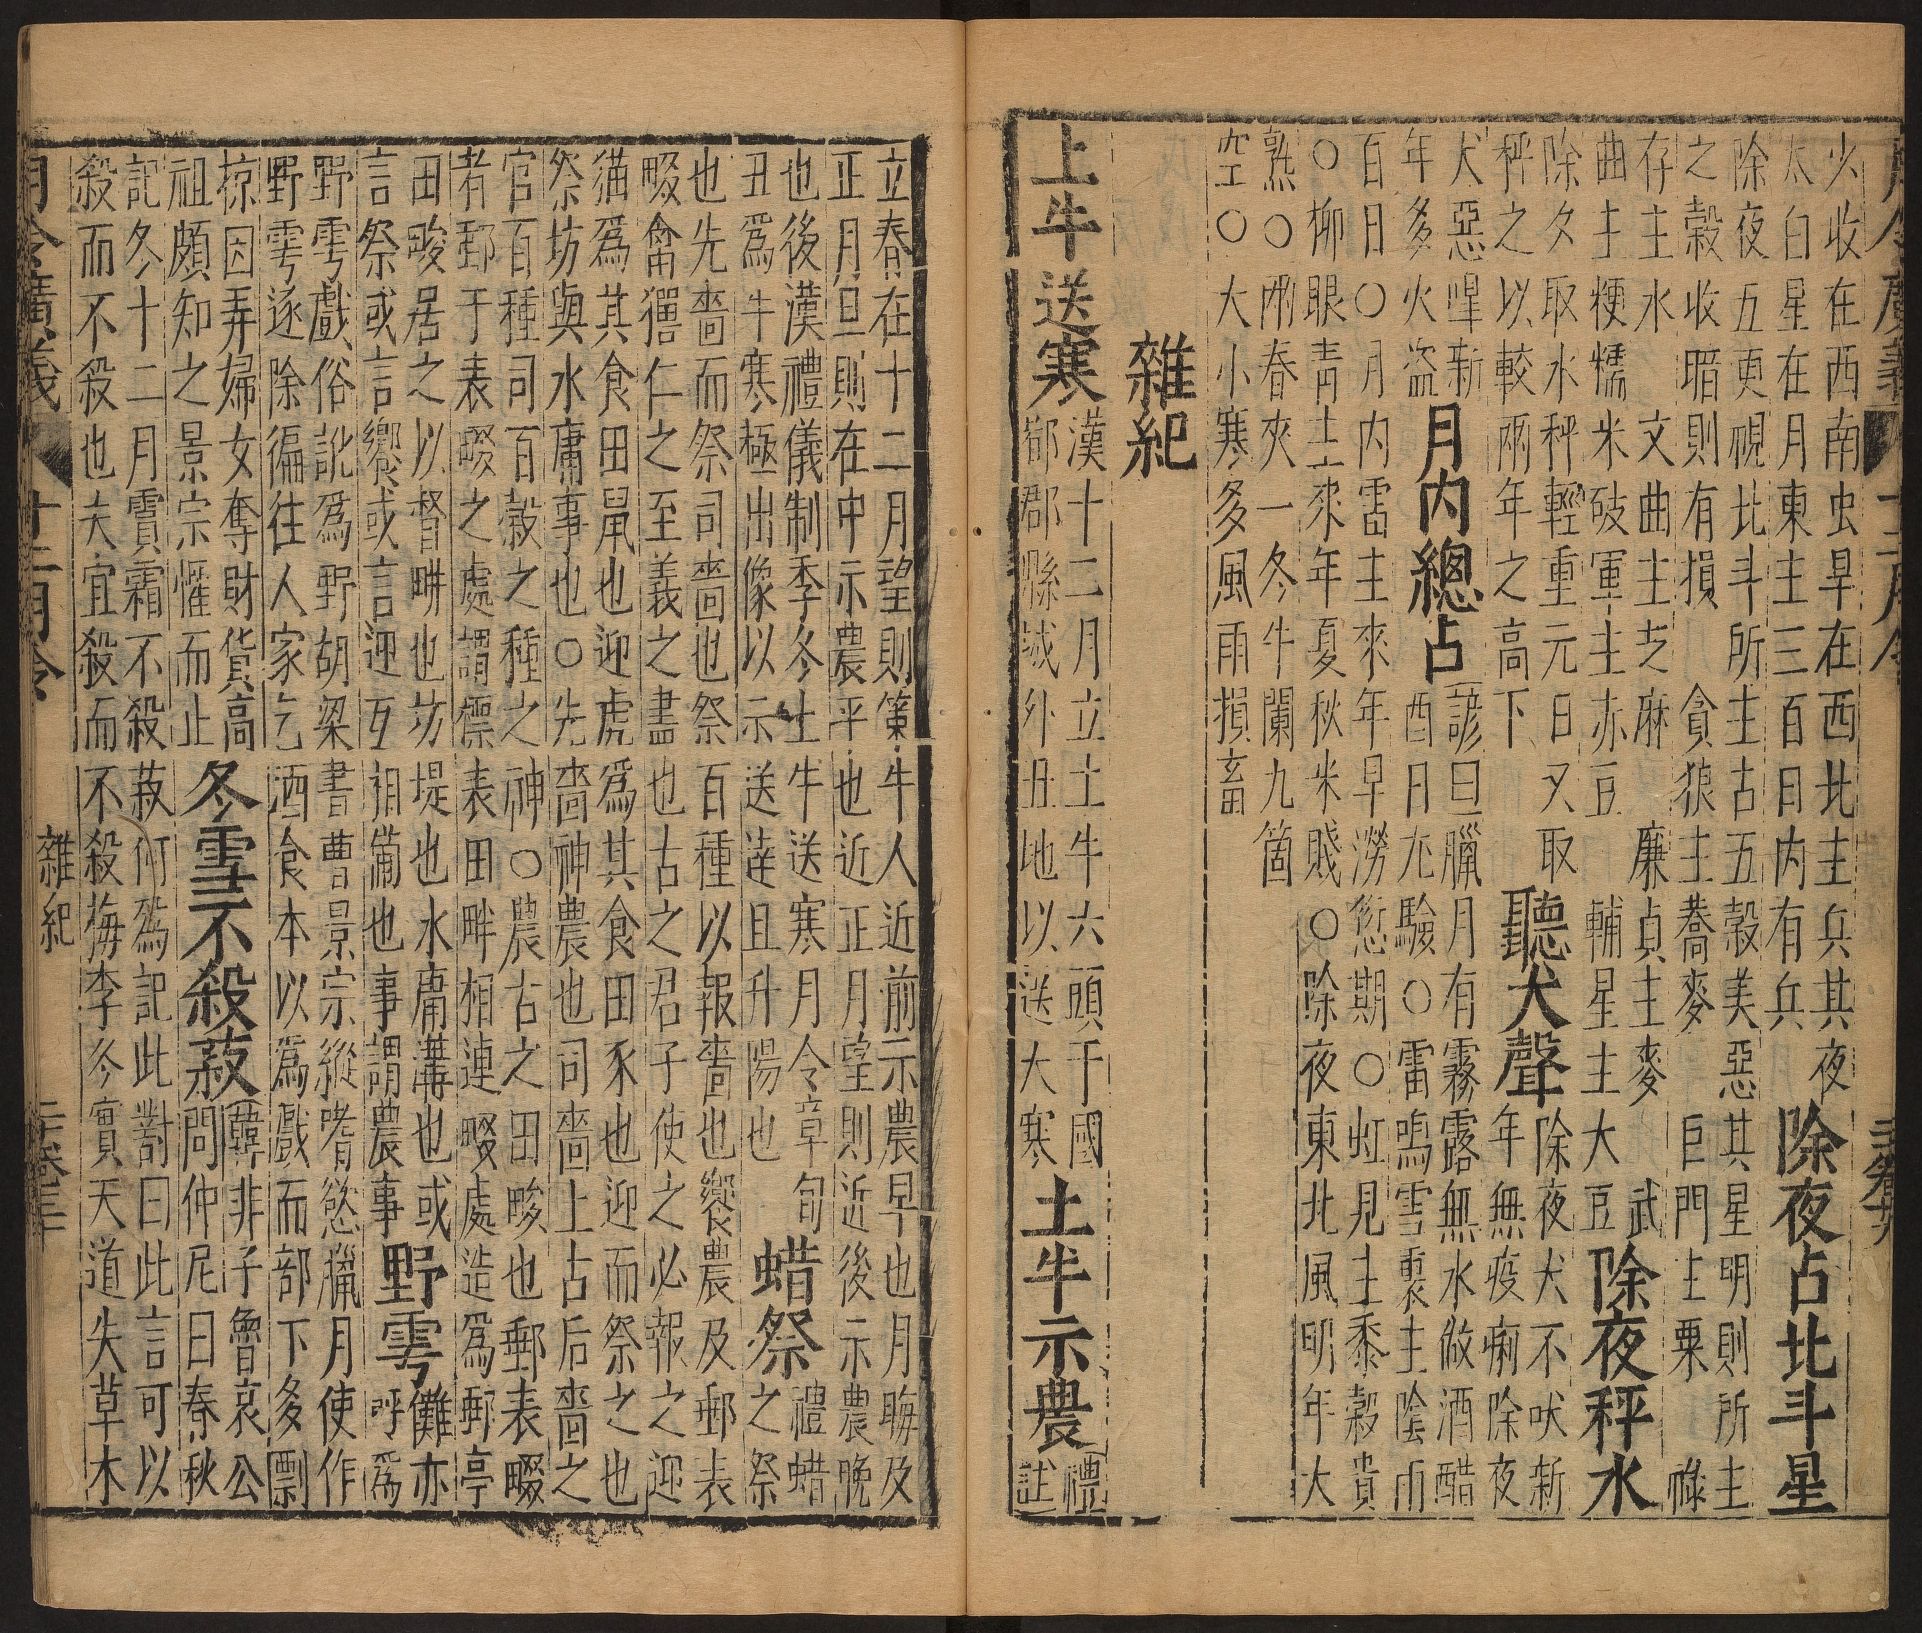 火收在西南虫旱在西北主兵其夜
太白星在月東主三百日内有兵
除夜占北斗星
除夜五更視北斗所主古五穀美惡其星明則所主
之穀收暗則有損
貪狼主蕎麥
巨門主粟
祿
存主水
文曲主芝麻
廉貞主麥
武
曲主粳糯米
破軍主赤豆
輔星主大豆
除夜秤水
除夕取水秤輕重元日又取
秤之以較兩年之高下
聽犬聲
除夜犬不吠新
年無疫痢除夜
犬惡嘷新
年多火盗
月内總占
諺曰臘月有霧露無水做酒醋
酉日尤驗○雷鳴雪裏主陰雨
百日○月内雷主來年旱澇愆期○虹見主黍穀貴
○柳眼青主來年夏秋米賤○除夜東北風明年大
熟○兩春夾一冬牛闌九箇
空○大小寒多風雨損畜
雜紀
土牛送寒
漢十二月立土牛六頭于國
都郡縣城外丑地以送大寒
土牛示農
禮
註
立春在十二月望則策牛人近前示農早也月晦及
正月旦則在中示農平也近正月望則近後示農晚
也後漢禮儀制季冬土牛送寒月令章句
丑為牛寒極出像以示送達且升陽也
蜡祭
禮蜡
之祭
也先嗇而祭司嗇也祭百種以報嗇也饗農及郵表
畷禽獸仁之至義之盡也古之君子使之必報之迎
猫為其食田鼠也迎虎為其食田豕也迎而祭之也
祭坊與水庸事也○先嗇神農也司嗇上古后嗇之
官百種司百穀之種之神○農古之田畯也郵表畷
者郵于表畷之處謂標表田畔相連畷處造為郵亭
田畯居之以督畊也坊堤也水庸溝也或
言祭或言饗或言迎互相備也事謂農事
野雩
儺亦
呼為
野雩戲俗訛為野胡梁書曹景宗縱嗜慾臘月使作
野雩逐除徧往人家乞酒食本以為戲而部下多剽
掠因弄婦女奪財貨高
祖頗知之景宗懼而止
冬雪不殺菽
韓非子魯哀公
問仲尼曰春秋
記冬十二月霣霜不殺菽何為記此對曰此言可以
殺而不殺也夫宜殺而不殺梅李冬實天道失草木
月令廣義
十二月令
雜紀